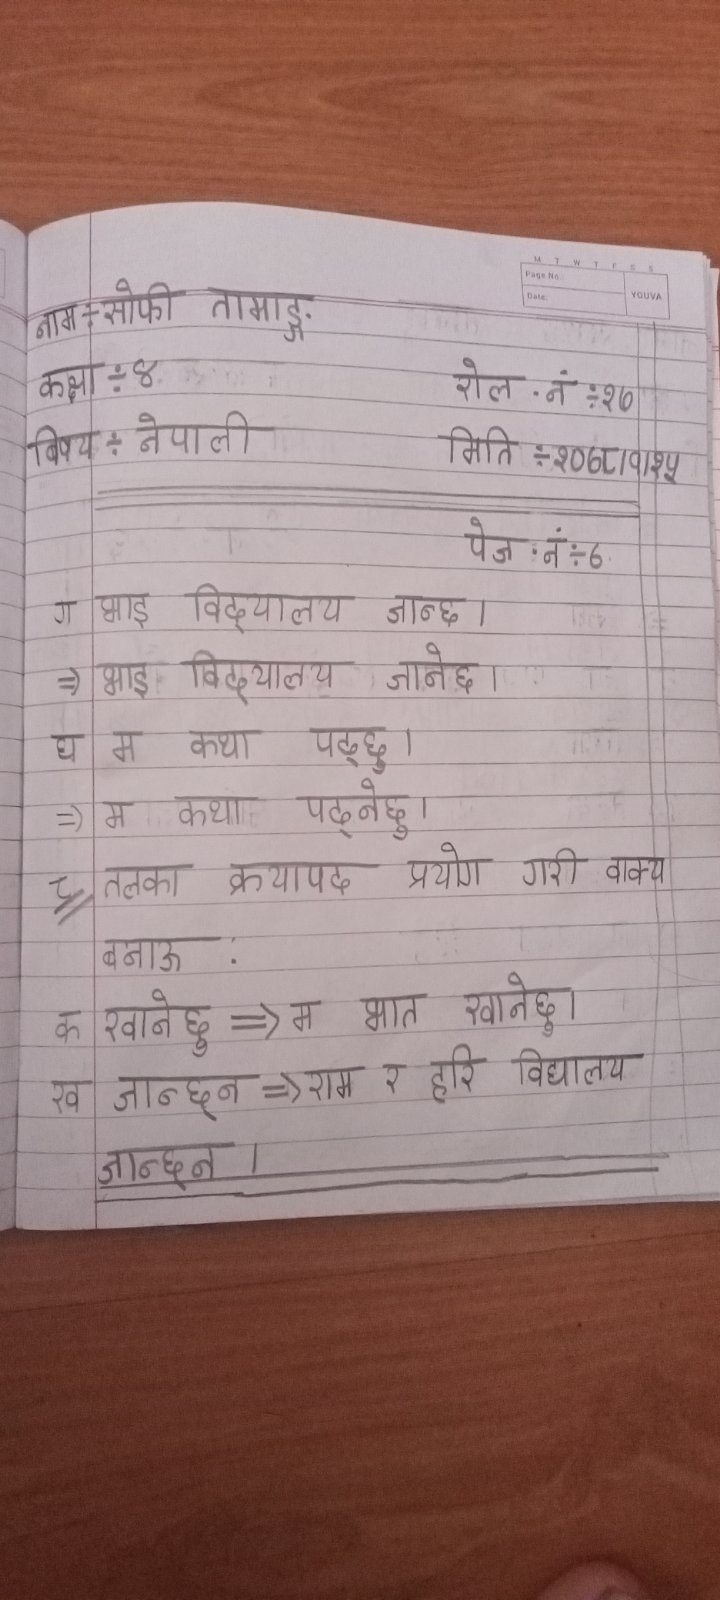 M T W T F S S
Page No.:
Date:
YOUVA
नाम ÷ सोफी तामाङ्ग.
कक्षा ÷ ४
रोल . नं ÷ २७
बिषय ÷ नेपाली
मिति ÷ २०७८।१।२५
पेज . नं ÷ ७
ग भाइ विद्‌यालय जान्छ।
⇒ भाइ विद्‌यालय जानेछ।
घ म कथा पढ्छु।
⇒ म कथा पढ्नेछु।
८ तलका क्रयापद प्रयोग गरी वाक्य
बनाऊ :
क खानेछु ⇒ म भात खानेछु।
ख जान्छ्न ⇒ राम र हरि विद्यालय
जान्छ्न ।